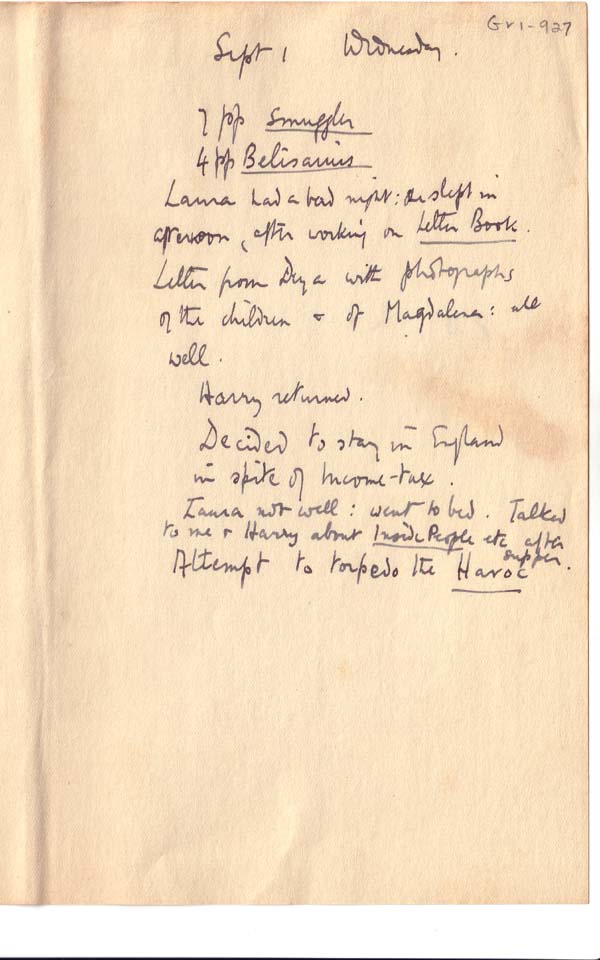 Gr1-927
Sept 1 Wednesday.
7 pp Smuggler
4 pp Belisarius
Laura had a bad night: slept in
afternoon, after working on Letter Book.
Letter from Deya with photographs
of the children & of Magdalena: all
well.
Harry returned.
Decided to stay in England
in spite of Income-tax.
Laura not well: went to bed. Talked
to me & Harry about Inside People etc after
supper.
Attempt to torpedo the Havoc